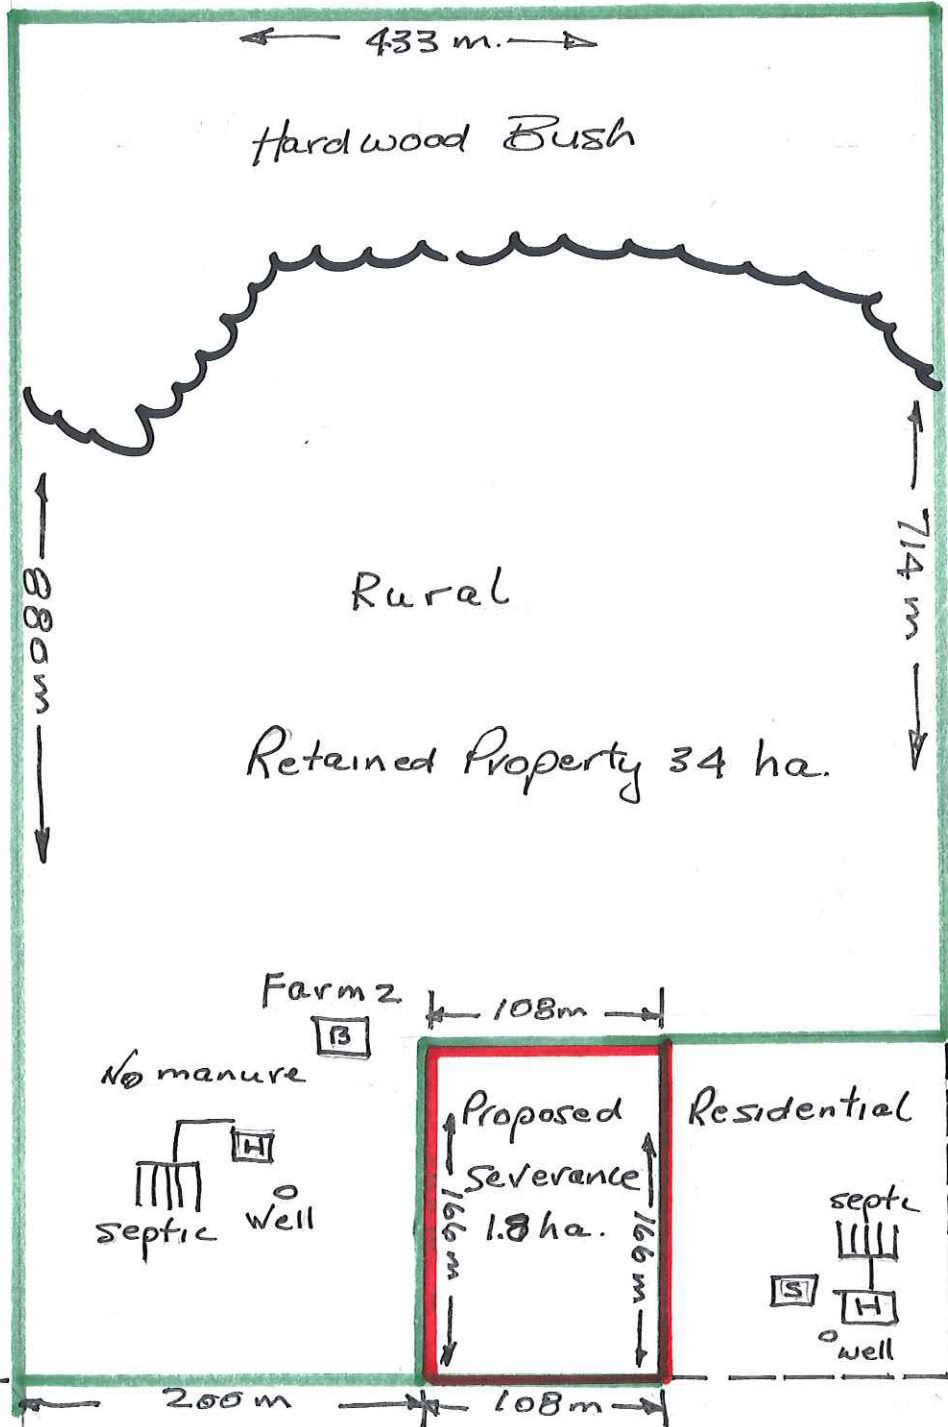 433 m.
Hardwood Bush
880m
714 m
Rural
Retained Property 34 ha.
Farm 2
B
108m
No manure
H
septic
Well
Proposed
severance
1.8 ha.
166 m
166 m
Residential
septc
S
H
well
200 m
108m